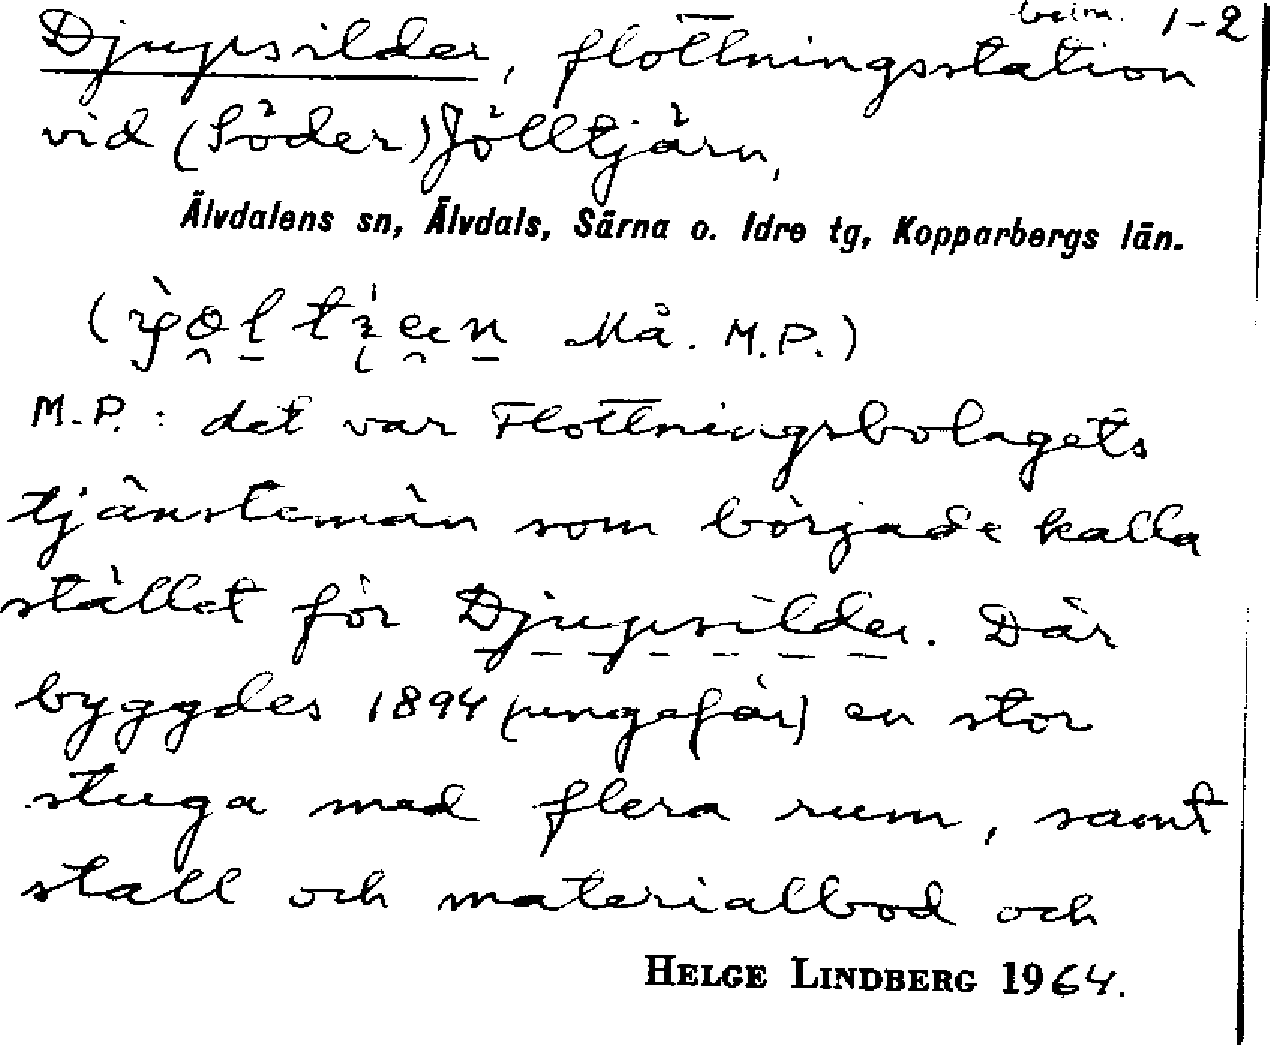 belm. 1-2
Djupsilder, flottningsstation
vid (Söder) Jölltjärn,
Älvdalens sn, Älvdals, Särna o. Idre tg, Kopparbergs län.
Må. M.P.)
M.P.: det var Flottningsbolagets
tjänstemän som började kalla
stället för Djupsilder. Där
byggdes 1894 (ungefär) en stor
stuga med flera rum, samt
stall och materialbod och
HELGE LINDBERG 1964.